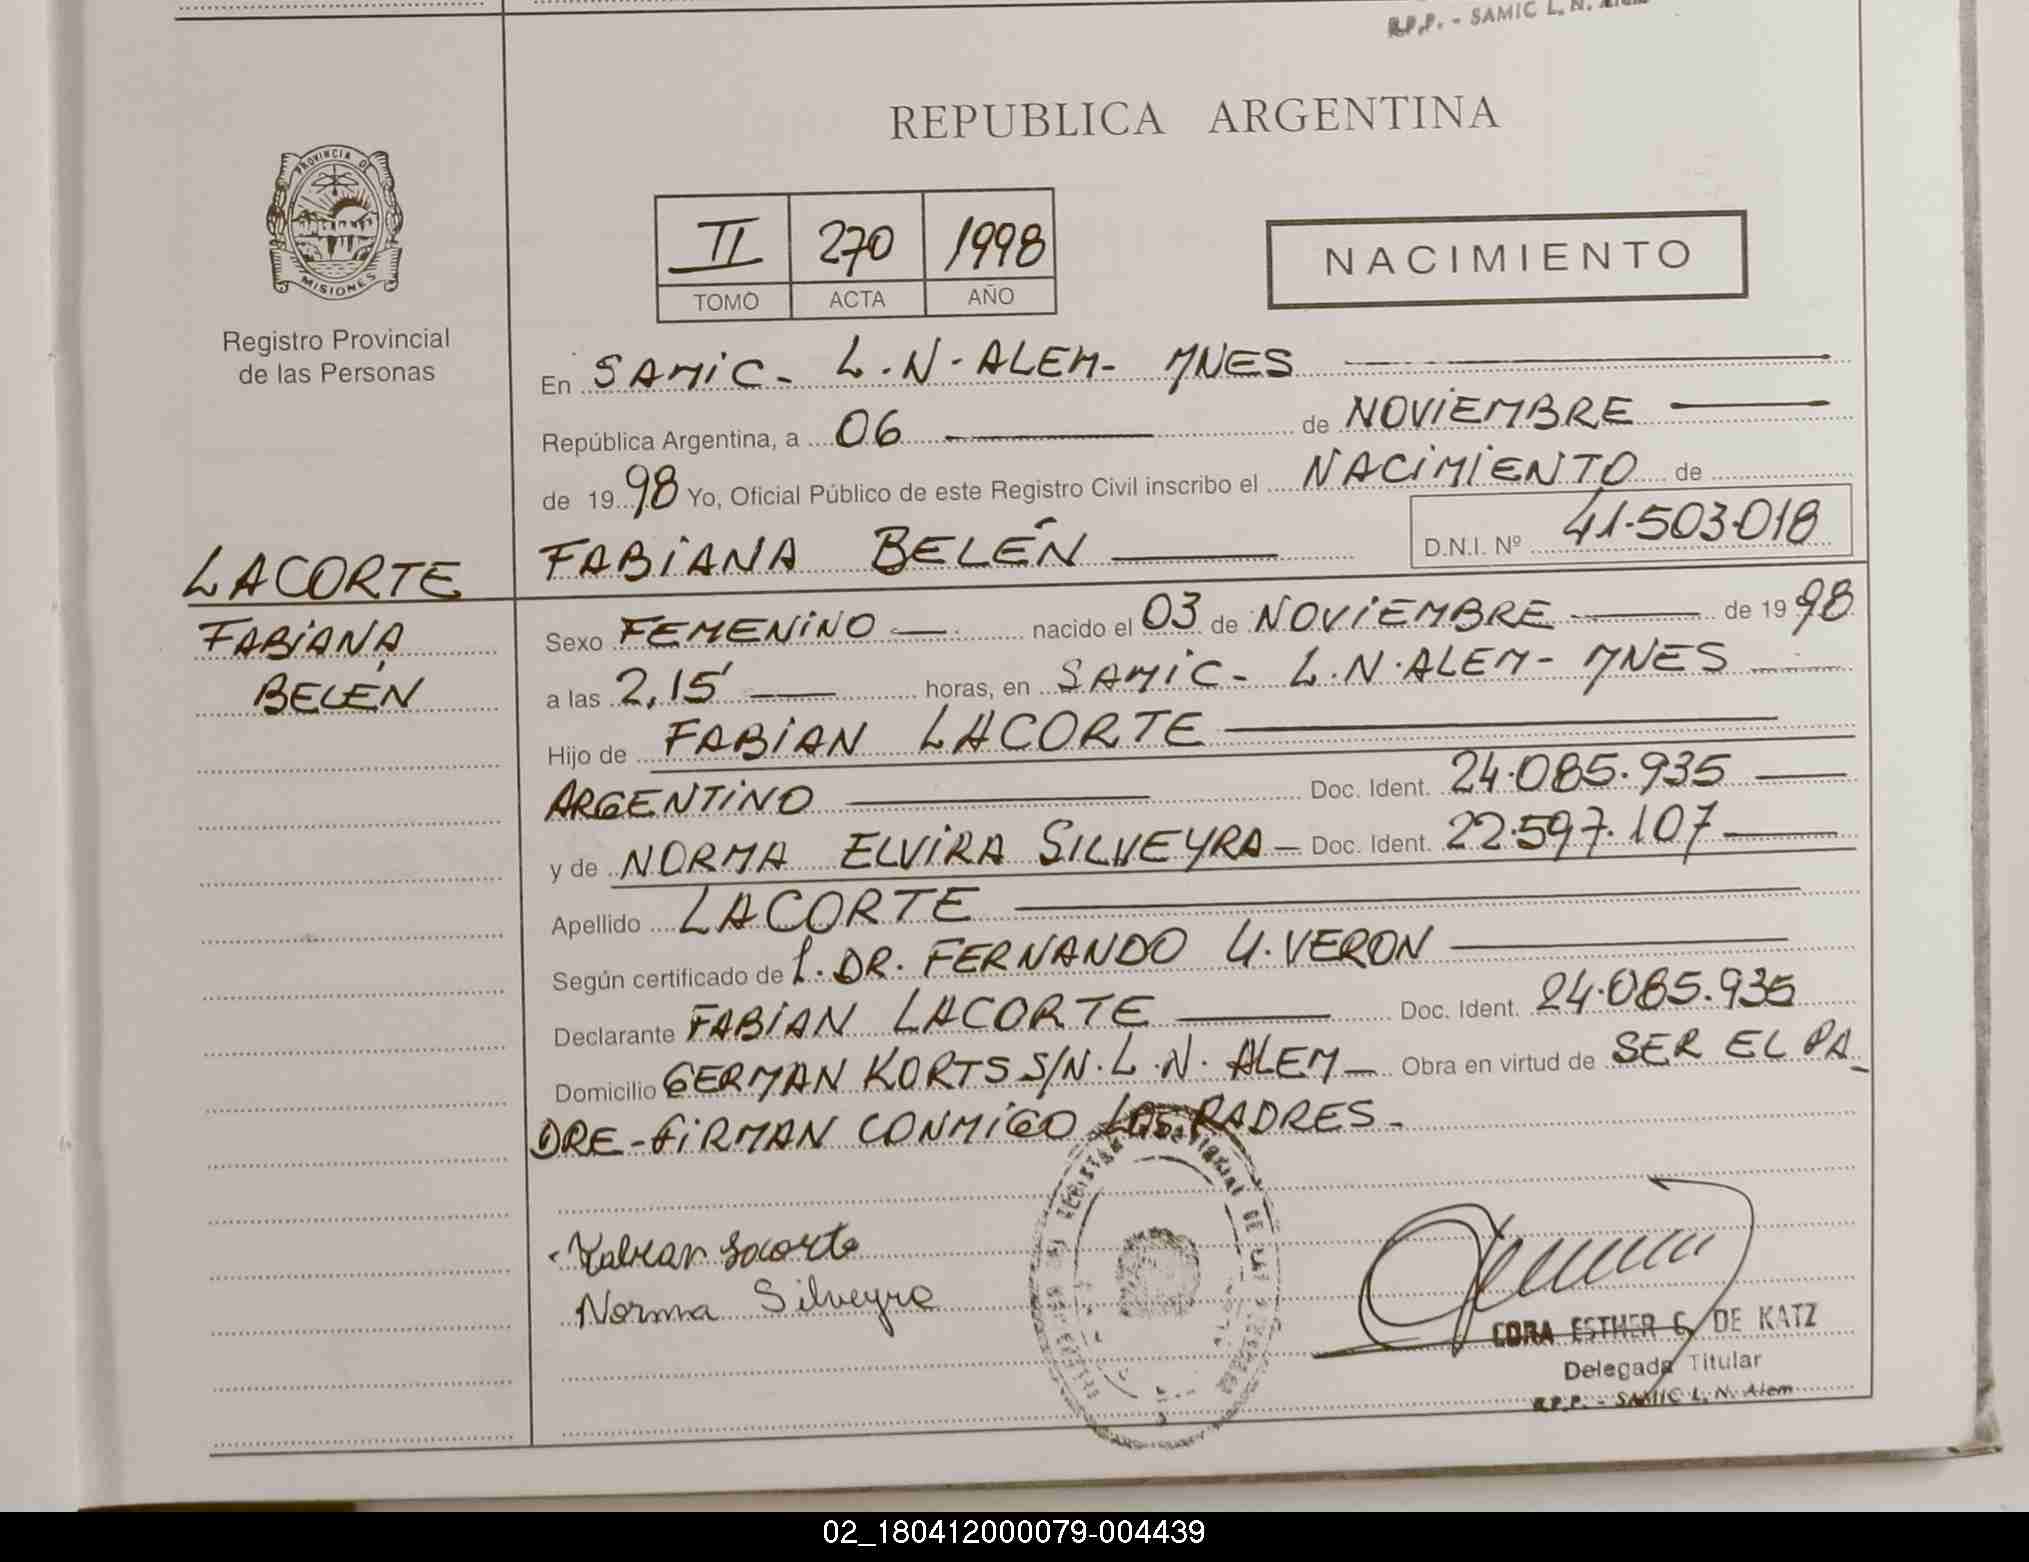 R.P.P. - SAMIC L. N. Alem
REPUBLICA ARGENTINA
PROVINCIA DE
MISIONES
Registro Provincial
de las Personas
II 270 1998
TOMO ACTA AÑO
NACIMIENTO
En SAMIC- L.N-ALEM- MNES
República Argentina, a 06 de NOVIEMBRE
de 1998 Yo, Oficial Público de este Registro Civil inscribo el NACIMIENTO de
FABIANA BELÉN D.N.I. Nº 41.503.018
LACORTE
FABIANA
BELÉN
Sexo FEMENINO nacido el 03 de NOVIEMBRE de 1998
a las 2,15' horas, en SAMIC- L.N.ALEM- MNES
Hijo de FABIAN LACORTE
ARGENTINO Doc. Ident. 24.085.935
y de NORMA ELVIRA SILVEYRA- Doc. Ident. 22.597.107
Apellido LACORTE
Según certificado de DR. FERNANDO U. VERON
Declarante FABIAN LACORTE Doc. Ident. 24.085.935
Domicilio GERMAN KORTS S/N. L.N. ALEM- Obra en virtud de SER EL PA-
DRE-FIRMAN CONMIGO LOS PADRES-
Fabian Lacorte
Norma Silveyra
CORA ESTHER G. DE KATZ
Delegada Titular
R.P.P. - SAMIC L. N. Alem
02_180412000079-004439